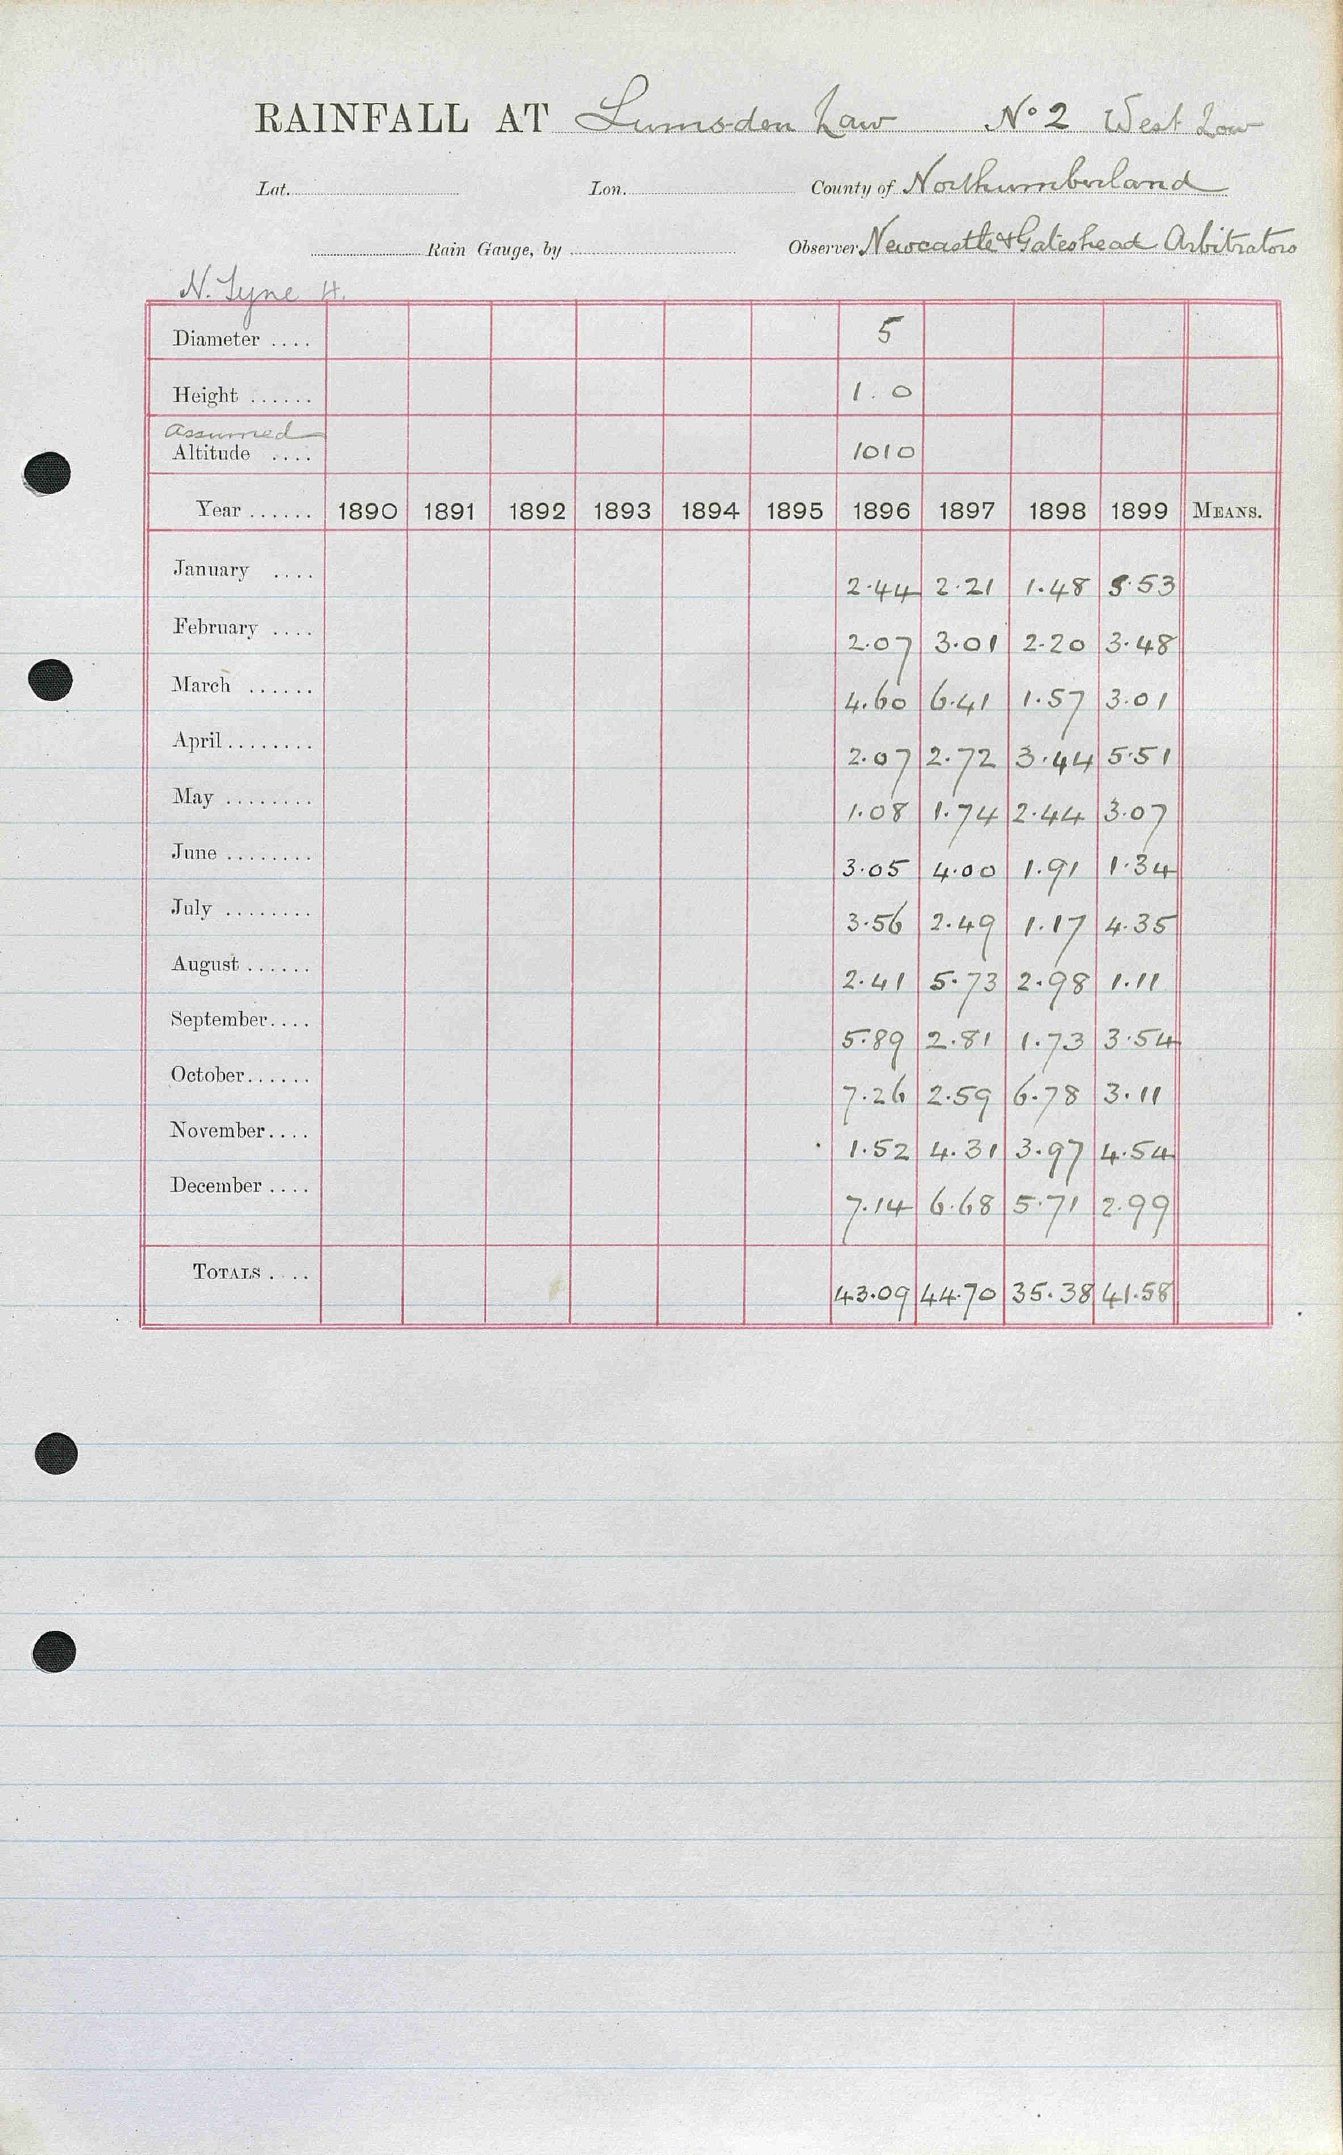 RAINFALL AT Lumsden Law No 2 West Low
Lat. Lon. County of Northumberland
Rain Gauge, by Observer Newcastle & Gateshead Arbitrators
N. Tyne H.
Diameter .... 5
Height ...... 1.0
assumed
Altitude .... 1010
Year ...... 1890 1891 1892 1893 1894 1895 1896 1897 1898 1899 MEANS.
January .... 2.44 2.21 1.48 5.53
February .... 2.07 3.01 2.20 3.48
March ...... 4.60 6.41 1.57 3.01
April ........ 2.07 2.72 3.44 5.51
May ........ 1.08 1.74 2.44 3.07
June ........ 3.05 4.00 1.91 1.34
July ........ 3.56 2.49 1.17 4.35
August ...... 2.41 5.73 2.98 1.11
September.... 5.89 2.81 1.73 3.54
October...... 7.26 2.59 6.78 3.11
November.... 1.52 4.31 3.97 4.54
December .... 7.14 6.68 5.71 2.99
TOTALS .... 43.09 44.70 35.38 41.58